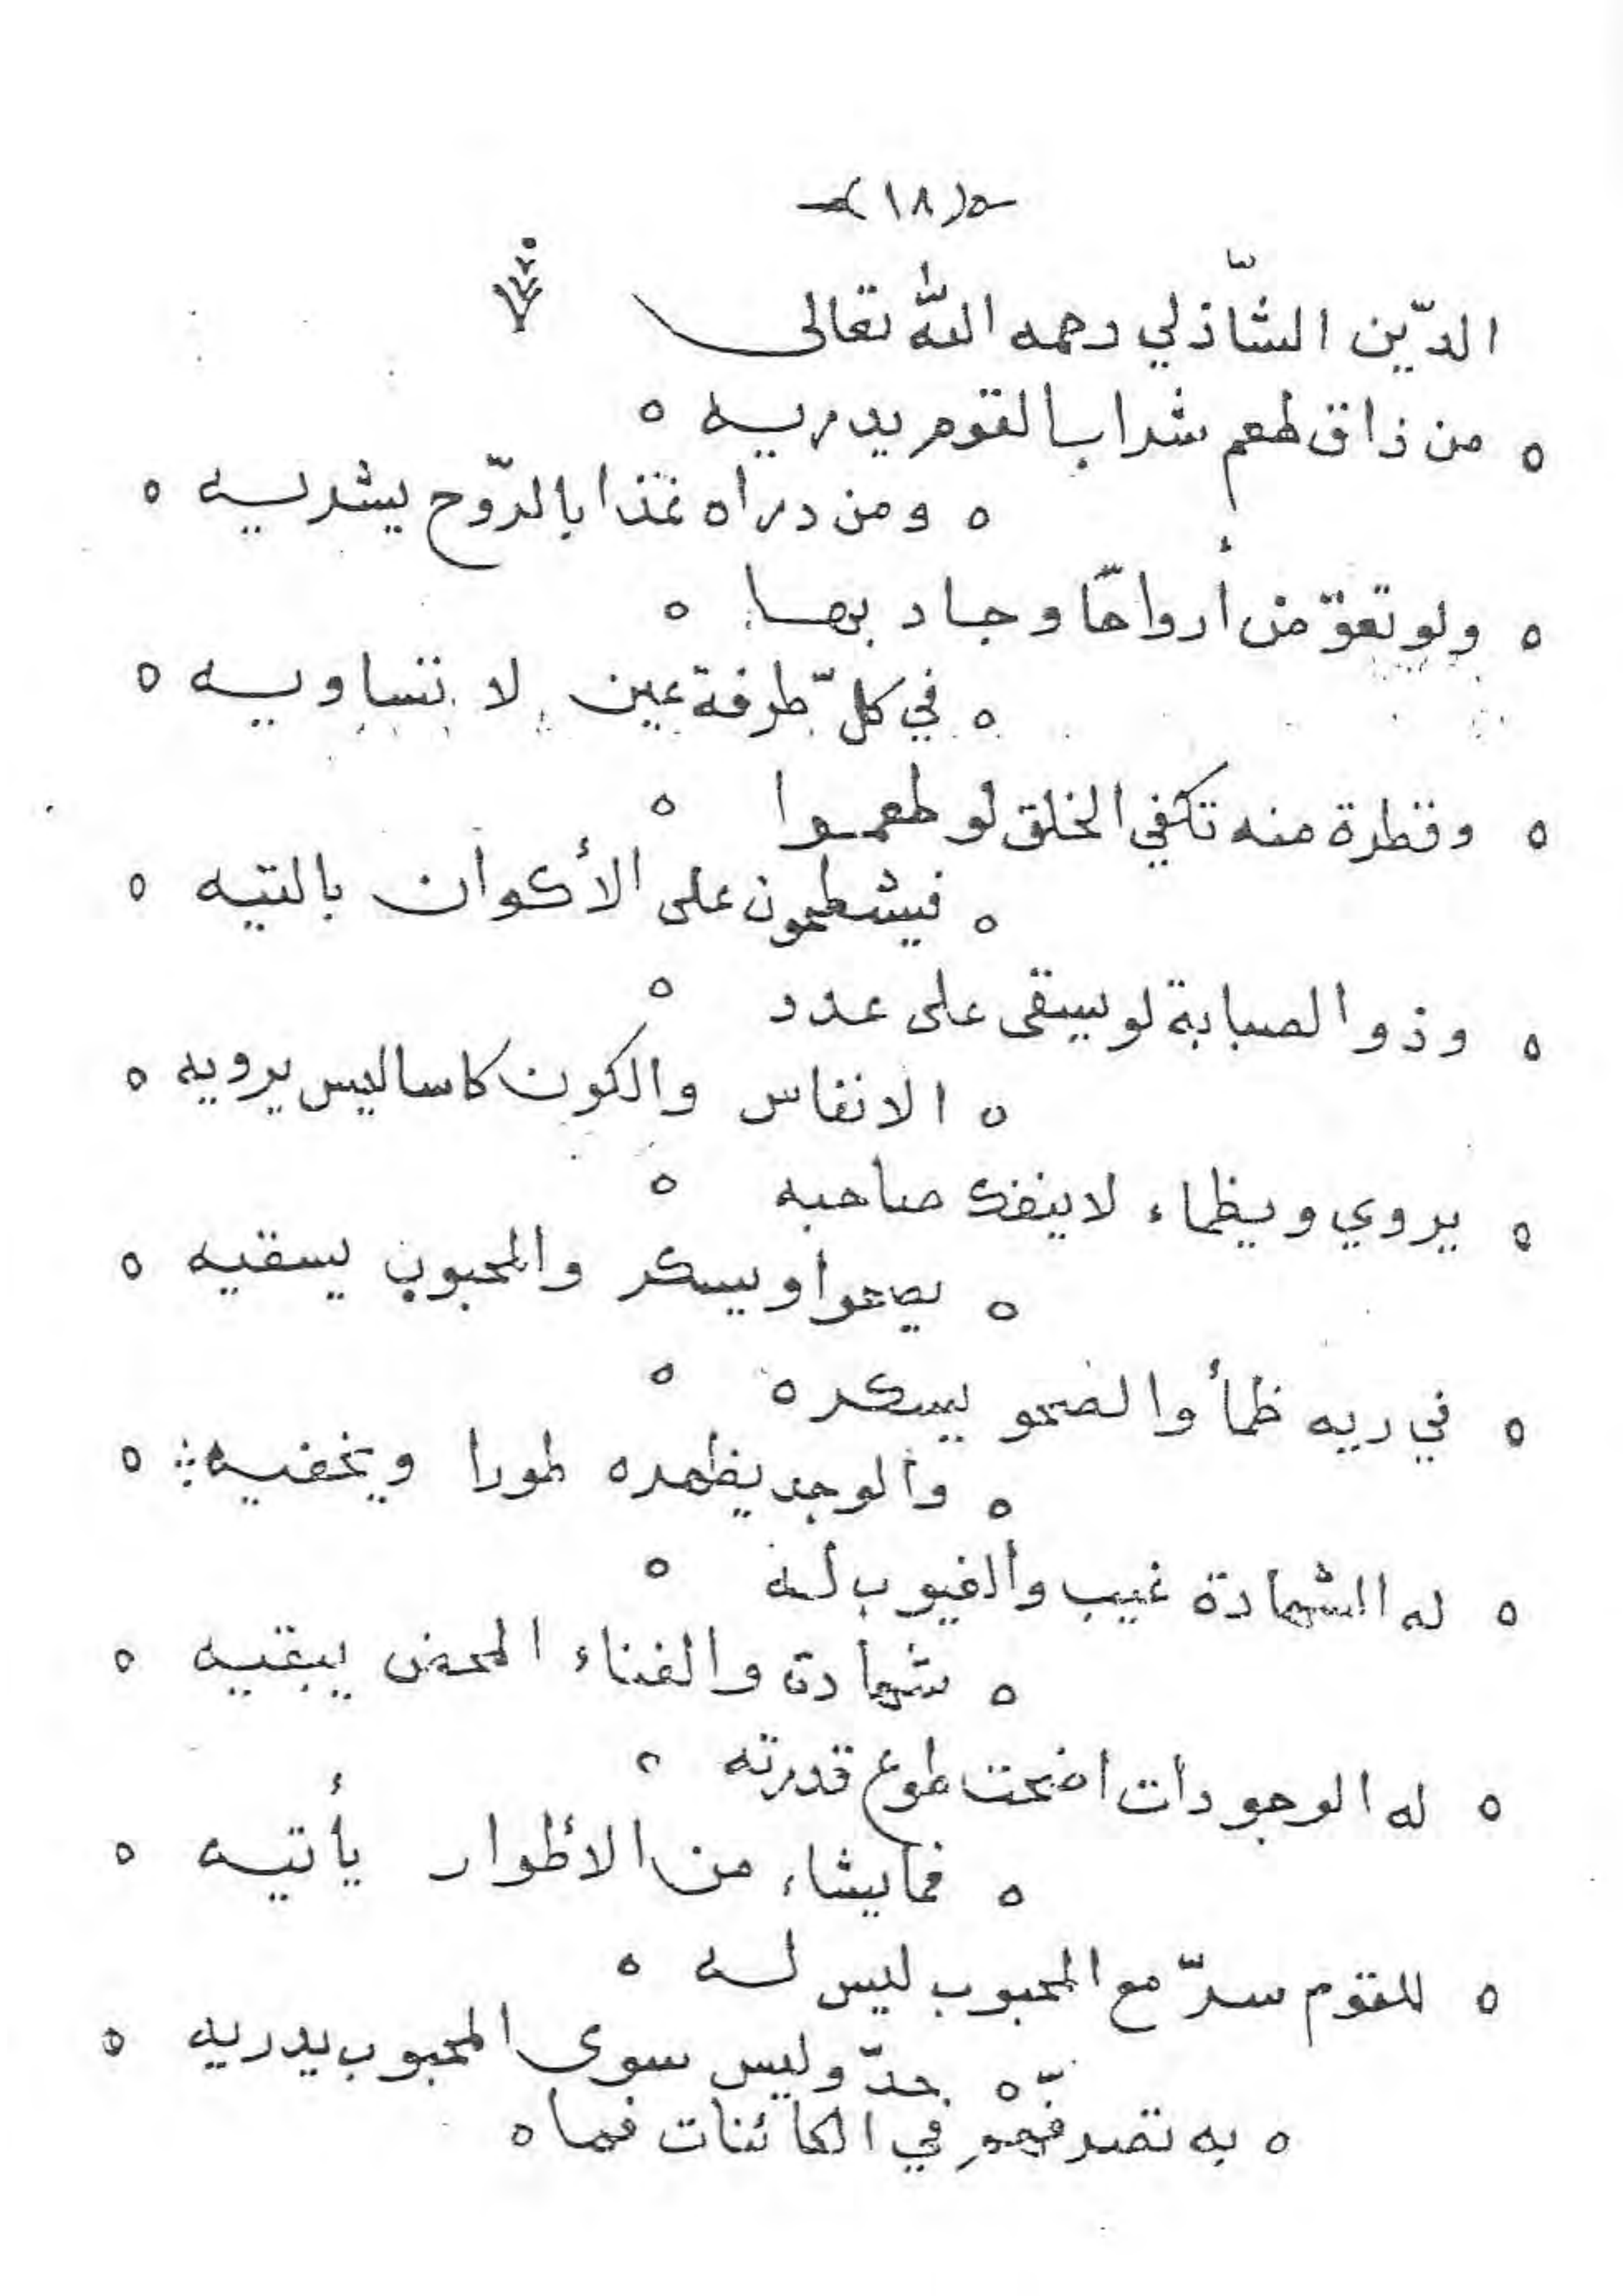 (١٨)
الدّين الشّاذلي رحمه الله تعالى
ه من ذاق طعم شراب القوم يدريه ه
ه ومن دراه غذا بالرّوح يشريه ه
ه ولو تعوّض أرواحًا وجاد بها ه
ه في كلّ طرفة عين لا تساويه ه
ه وقطرة منه تكفي الخلق لو طعموا ه
ه فيشطحون على الأكوان بالتيه ه
ه وذو الصبابة لو يسقى على عدد ه
ه الانفاس والكون كاسا ليس يرويه ه
ه يروي ويظماء لا ينفك صاحبه ه
ه يصحوا ويسكر والمحبوب يسقيه ه
ه في ريه ظمأ والصحو يسكره ه
ه والوجد يظهره طورا ويخفيه ه
ه له الشهادة غيب والغيوب له ه
ه شهادة والفناء المحض يبقيه ه
ه له الوجودات اضحت طوع قدرته ه
ه فمايشاء من الأطوار يأتيه ه
ه للقوم سرّ مع المحبوب ليس له ه
ه حدّ وليس سوى المحبوب يدريه ه
ه به تصرفهم في الكائنات فما ه